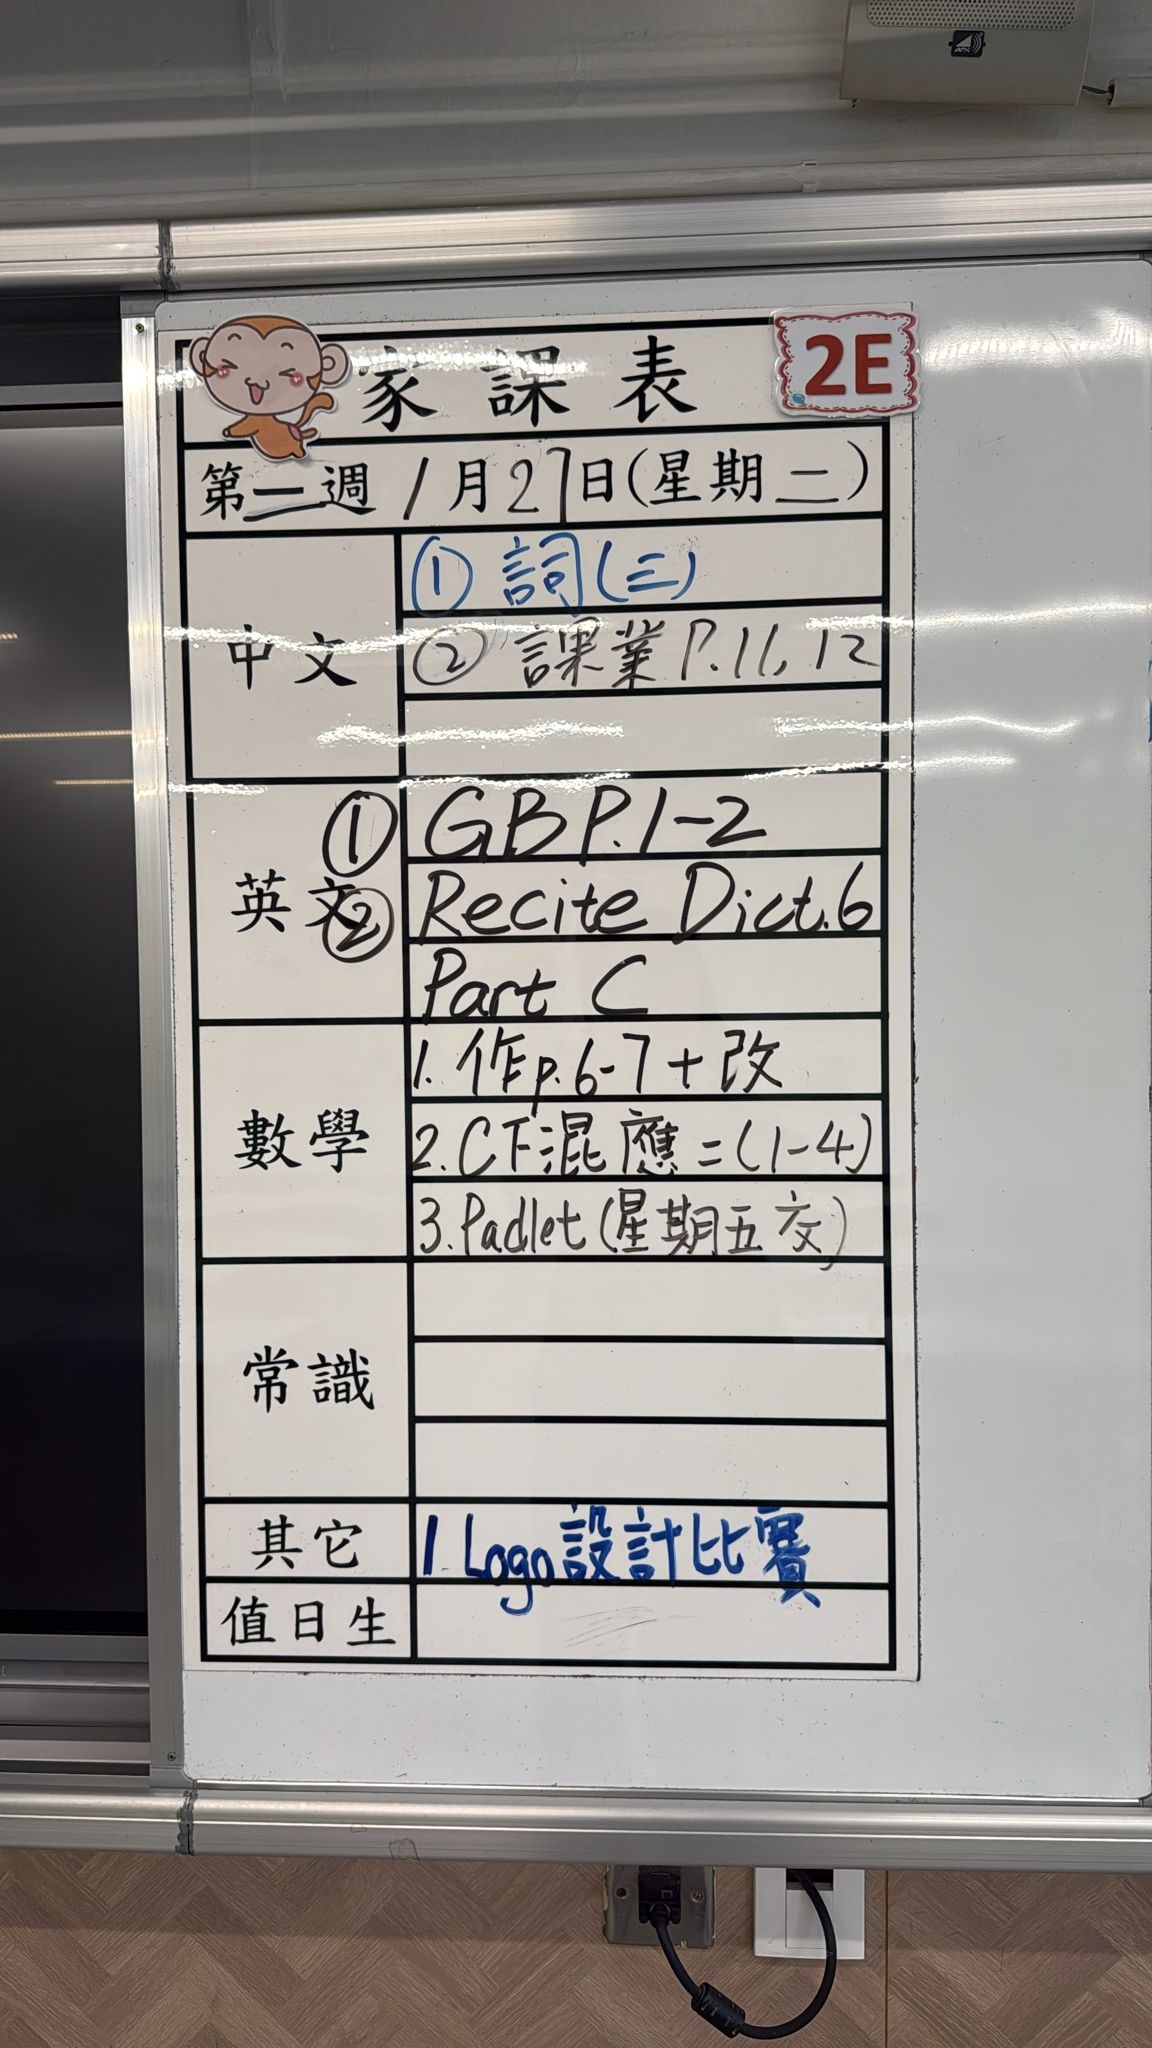 家課表
2E
第一週 1月27日(星期二)
中文
① 詞(三)
② 課業 P.11, 12
英文
① GB P.1-2
② Recite Dict.6
Part C
數學
1. 作p.6-7+改
2. CF混應=(1-4)
3. Padlet(星期五交)
常識
其它
1. Logo設計比賽
值日生